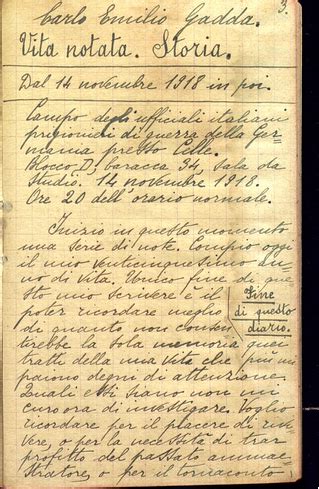 3.
Carlo Emilio Gadda.
Vita notata. Storia.
Dal 14 novembre 1918 in poi.
Campo degli ufficiali italiani
prigionieri di guerra della Ger-
mania presso Celle.
Blocco D, baracca 34, sala da
studio. 14 novembre 1918.
Ore 20 dell'orario normale.
Inizio in questo momento
una serie di note. Compio oggi
il mio venticinquesimo an-
no di vita. Unico fine di que-
sto mio scrivere è il
poter ricordare meglio
di quanto non consen
tirebbe la sola memoria quei
tratti della mia vita che più mi
paiono degni di attenzione.
Quali essi siano non mi
curo ora di investigare. Voglio
ricordare per il piacere di rivi-
vere, o per la necessità di trar
profitto del passato ammae-
stratore, o per il tornaconto
Fine
di questo
diario.